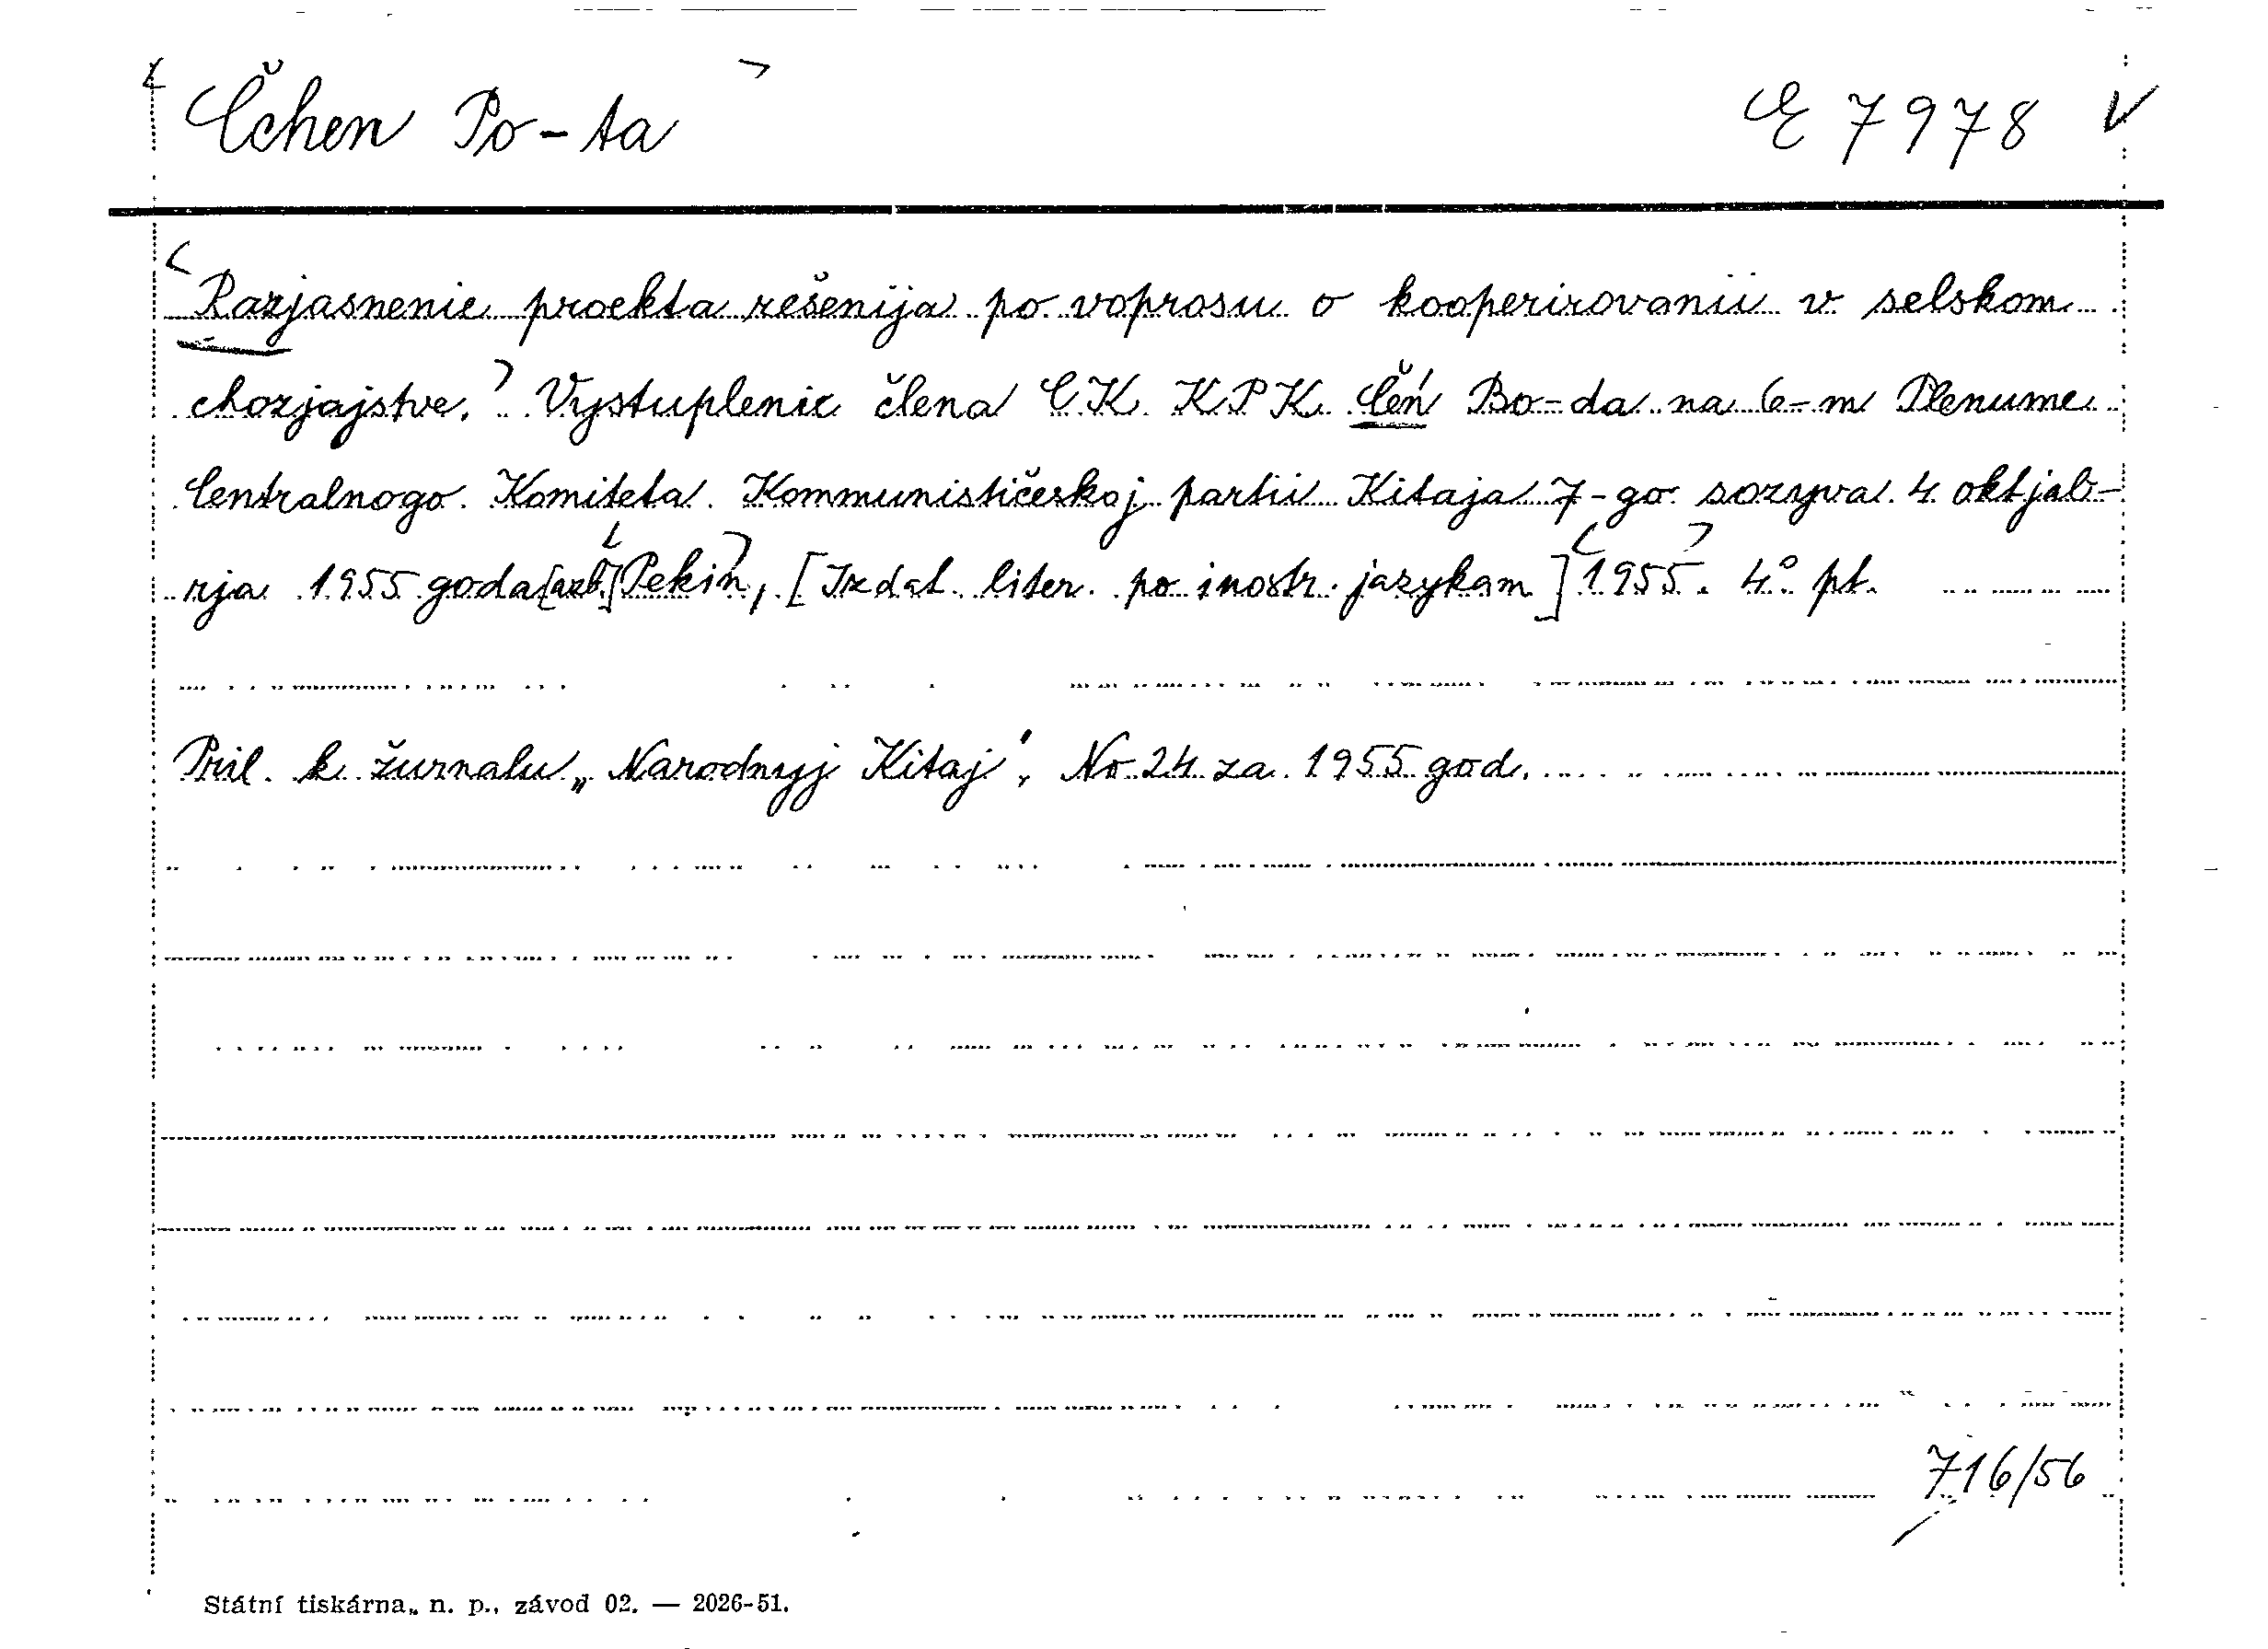 Čchen Po-ta E 7978 V
Razjasnenie proekta rešenija po voprosu o kooperirovanii v selskom
chozjajstve. Vystuplenie člena CK KPK Čeń Bo-da na 6-m Plenume
Centralnogo Komiteta Kommunističeskoj partii Kitaja 7-go sozyva 4 oktjab-
rja 1955 goda [azb.] Pekin, [Izdat. liter. po inostr. jazykam] 1955. 4° pt.
Pril. k žurnalu „Narodnyj Kitaj", No 24 za 1955 god.
716/56
Státní tiskárna, n. p., závod 02. — 2026-51.